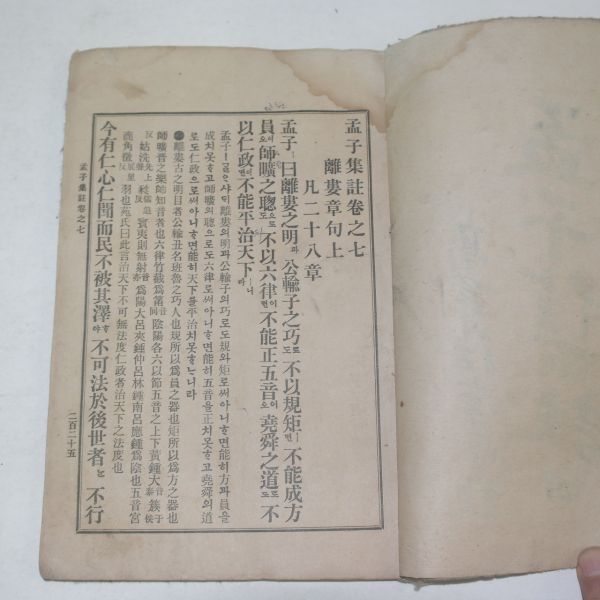 孟子集註卷之七
離婁章句上
凡二十八章
孟子ㅣ曰離婁之明과公輸子之巧로도不以規矩면不能成方
員이오師曠之聰으로도不以六律이면不能正五音이오堯舜之道로도不
以仁政이면不能平治天下ㅣ니라
孟子ㅣ샤離婁의明과公輸子의巧로도規와矩로써아니면能히方과員을
成치못고師曠의聰으로도六律로써아니면能히五音을正치못고堯舜의道
로도仁政으로써아니면能히天下를平治치못니라
離婁古之明目者公輸子名班魯之巧人也規所以爲員之器也矩所以爲方之器也
師曠晉之樂師知音者也六律竹截爲筩陰陽各六以節五音之上下黃鍾大簇
姑洗蕤賓夷則無射爲陽大呂夾鍾仲呂林鍾南呂應鍾爲陰也五音宮
商角徵羽也范氏曰此言治天下不可無法度仁政者治天下之法度也
今有仁心仁聞而民不被其澤야不可法於後世者는不行
孟子集註卷之七
二百二十五